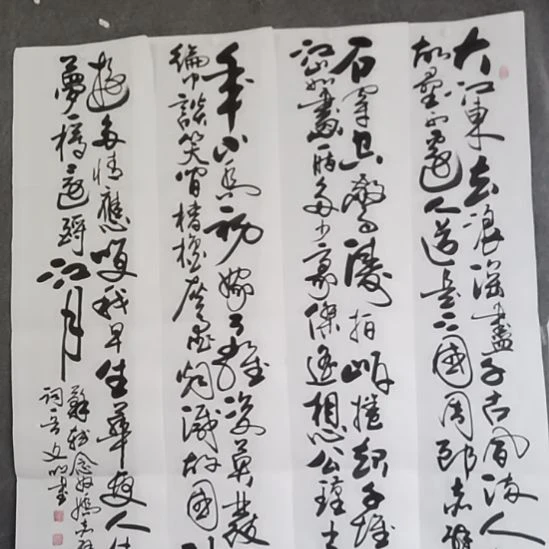 大江東去浪淘盡千古風流人
故壘西邊人道是三國周郎赤壁
石穿空驚濤拍岸捲起千堆
江山如畫一時多少豪傑遙想公瑾
年小喬初嫁了雄姿英發
綸巾談笑間檣櫓灰飛煙滅故國
遊多情應笑我早生華髮人生
夢一樽還酹江月
蘇軾念奴嬌赤壁
詞